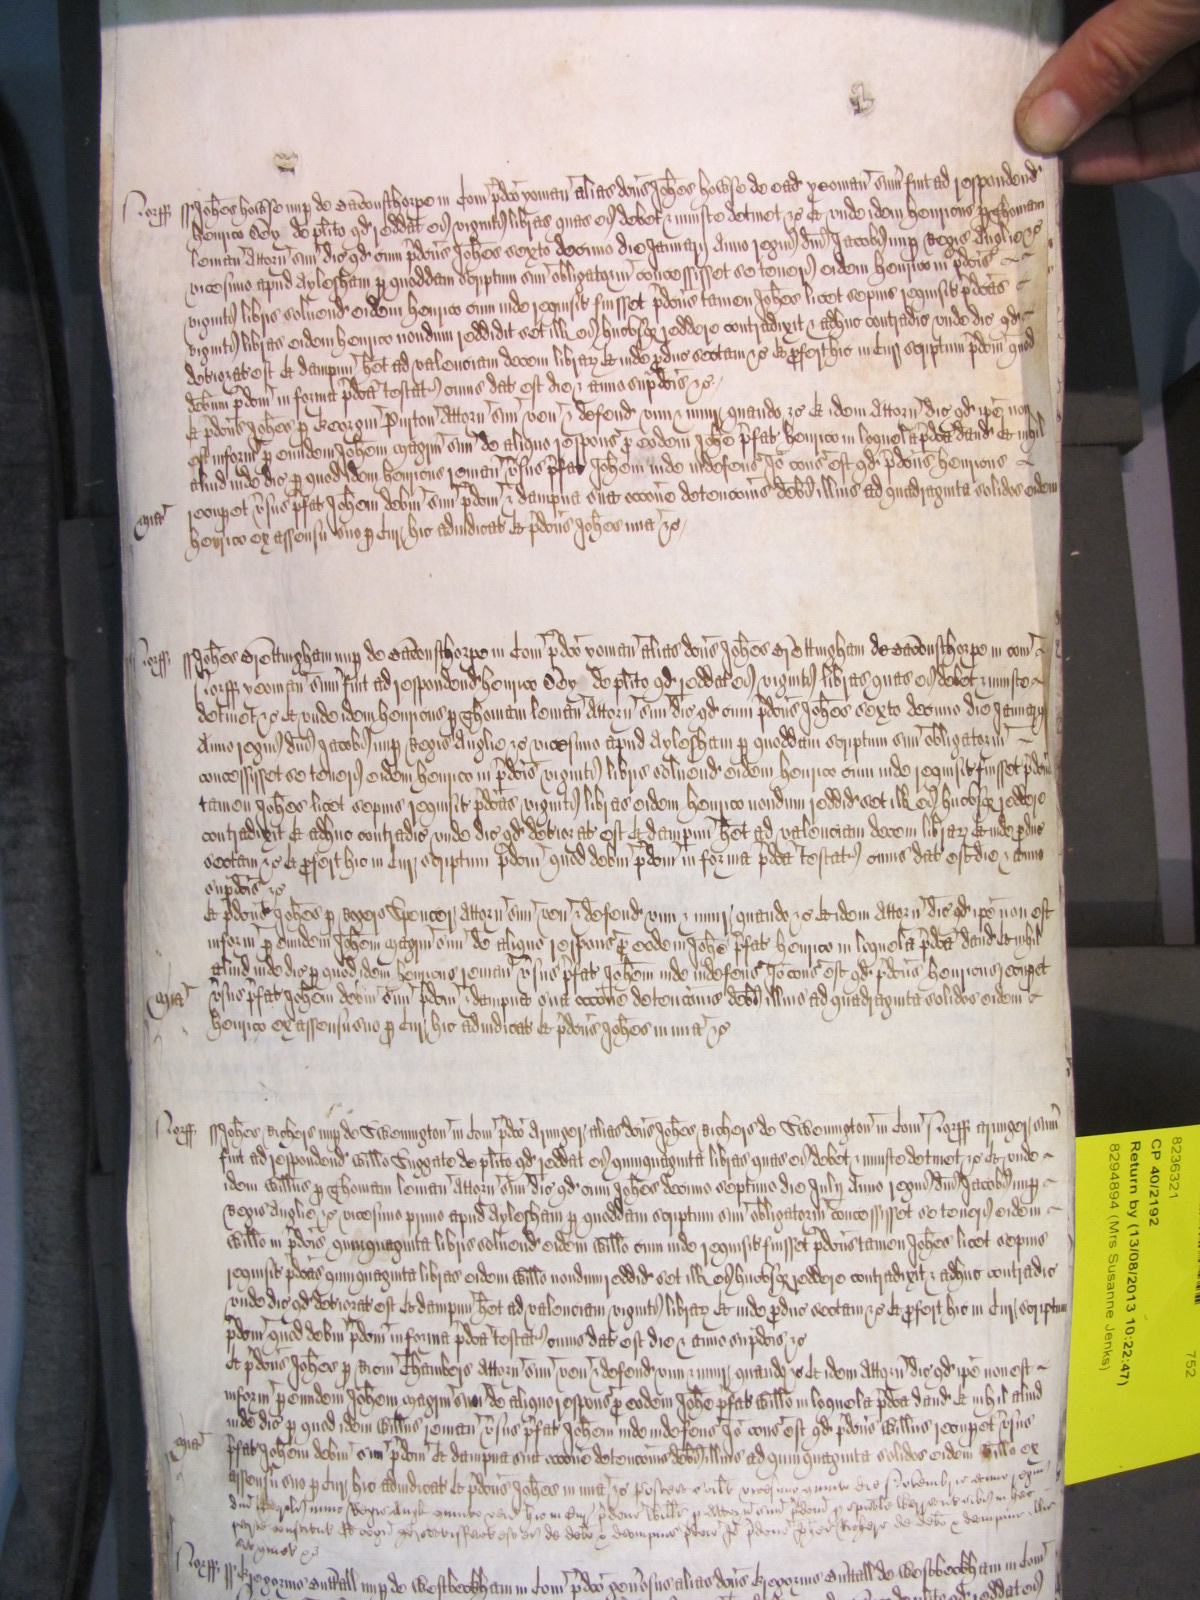 Norff ss Joħes howse nup de Baconsthorpe in Com p̄dco yoman alias dcus Joħes howse de ead yeoman sum fuit ad respondend
henrico Dey de plito qd reddat ei viginti libras quas ei debet & iniuste detinet &c Et unde idem henricus p Thomam
Leman Attorn suu dic qd cum p̄dcus Joħes sexto decimo die Januarij Anno regni dni Jacobi nup Regis Anglie &c
vicesimo apud Aylesham p quoddam scriptum suu obligatoriu concessisset se teneri eidem henrico in p̄dcis
viginti libris solvend eidem henrico cum inde requisit fuisset p̄dcus tamen Joħes licet sepius requisit p̄dcas
viginti libras eidem henrico nondum reddidit set ill ei hucusq reddere contradixit & adhuc contradic unde dic qd
deteriorat est Et dampnu het ad valenciam decem librar Et inde pduc sectam &c Et profert hic in Cur scriptum p̄dcm quod
debitum p̄dcm in forma p̄dca testat cuius dat est die & anno sup̄dcis &c
Et p̄dcus Joħes p Georgiu Attorn suu ven & defend vim & iniur quando &c Et idem Attorn dic qd ipe non
est informat p eundem Joħem magrm suu de aliquo respons p eodem Joħe p̄fat henrico in loquela p̄dca dand Et nihil
aliud inde dic p quod idem henricus reman vsus p̄fat Joħem inde indefens Io cons est qd p̄dcus henricus
recupet vsus p̄fat Joħem debitu suu p̄dcm & dampna sua occone detencionis debi illius ad quadraginta solidos eidem
mia henrico ex assensu suo p Cur hic adiudicat Et p̄dcus Joħes in mia &c
Norff ss Joħes Brettingham nup de Baconsthorpe in Com p̄dco yoman alias dcus Joħes Brettingham de Baconsthorpe in com
Norff yeoman sum fuit ad respondend henrico Dey de plito qd reddat ei viginti libras quas ei debet & iniuste
detinet &c Et unde idem henricus p Thomam Leman Attorn suu dic qd cum p̄dcus Joħes sexto decimo die Januarij
Anno regni dni Jacobi nup Regis Anglie &c vicesimo apud Aylesham p quoddam scriptum suu obligatoriu
concessisset se teneri eidem henrico in p̄dcis viginti libris solvend eidem henrico cum inde requisit fuisset p̄dcus
tamen Joħes licet sepius requisit p̄dcas viginti libras eidem henrico nondum reddid set ill ei hucusq reddere
contradixit Et adhuc contradic unde dic qd deteriorat est Et dampnu het ad valenciam decem librar Et inde pduc
sectam &c Et profert hic in Cur scriptum p̄dcm quod debitu p̄dcm in forma p̄dca testat cuius dat est die & anno
sup̄dcis &c
Et p̄dcus Joħes p Rogeru Spencer Attorn suu ven & defend vim & iniur quando &c Et idem Attorn dic qd ipe non est
informat p eundem Joħem magrm suu de aliquo respons p eodem Joħe p̄fat henrico in loquela p̄dca dand Et nihil
aliud inde dic p quod idem henricus reman vsus p̄fat Joħem inde indefens Io cons est qd p̄dcus henricus recupet
mia vsus p̄fat Joħem debitu suu p̄dcm & dampna sua occone detencionis debi illius ad quadraginta solidos eidem
henrico ex assensu suo p Cur hic adiudicat Et p̄dcus Joħes in mia &c
Norff ss Joħes Richers nup de Swannington in Com p̄dco Armiger alias dcus Joħes Richers de Swannington in Com Norff armiger sum
fuit ad respondend Willo Suggate de plito qd reddat ei quinquaginta libras quas ei debet & iniuste detinet &c Et unde
idem Willus p Thomam Leman Attorn suu dic qd cum Joħes decimo septimo die Julij Anno regni dni Jacobi nup
Regis Anglie &c vicesimo primo apud Aylesham p quoddam scriptum suu obligatoriu concessisset se teneri eidem
Willo in p̄dcis quinquaginta libris solvend eidem Willo cum inde requisit fuisset p̄dcus tamen Joħes licet sepius
requisit p̄dcas quinquaginta libras eidem Willo nondum reddid set ill ei hucusq reddere contradixit & adhuc contradic
unde dic qd deteriorat est Et dampnu het ad valenciam viginti librar Et inde pduc sectam &c Et profert hic in Cur scriptum
p̄dcm quod debitu p̄dcm in forma p̄dca testat cuius dat est die & anno sup̄dcis &c
Et p̄dcus Joħes p Ricm Chambers Attorn suu ven & defend vim & iniur quando &c Et idem Attorn dic qd ipe non est
informat p eundem Joħem magrm suu de aliquo respons p eodem Joħe p̄fat Willo in loquela p̄dca dand Et nihil aliud
inde dic p quod idem Willus reman vsus p̄fat Joħem inde indefens Io cons est qd p̄dcus Willus recupet vsus
mia p̄fat Joħem debitu suu p̄dcm Et dampna sua occone detencionis debi illius ad quinquaginta solidos eidem Willo ex
assensu suo p Cur hic adiudicat Et p̄dcus Joħes in mia &c postea scilt vicesimo die Novembr anno regni
dni Caroli nunc Regis Angl quinto ven hic in Cur p̄dcus Willus p Attorn suu p̄dcm
de debo & dampnis
&c
Norff ss Gregorius nup de Westbeckham in Com p̄dco genosus alias dcus Gregorius de Westbeckham in Com
8236321
CP 40/2192
Return by (13/08/2013 10:22:47)
8294894 (Mrs Susanne Jenks)
752